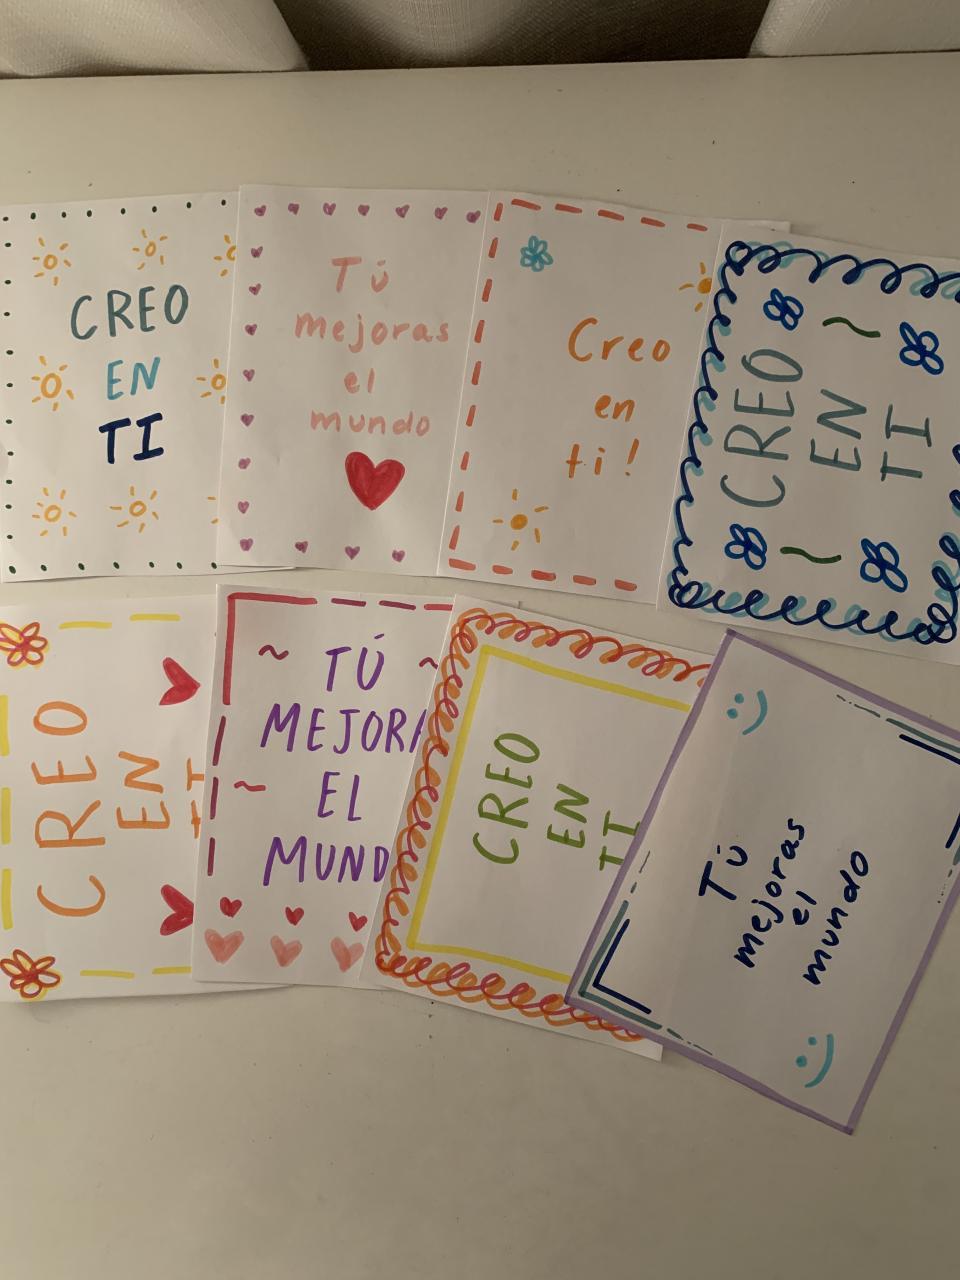 CREO
EN
TI
Tú
mejoras
el
mundo
Creo
en
ti!
CREO
EN
TI
CREO
EN
TI
TÚ
MEJORA
EL
MUND
CREO
EN
TI
Tú
mejoras
el
mundo